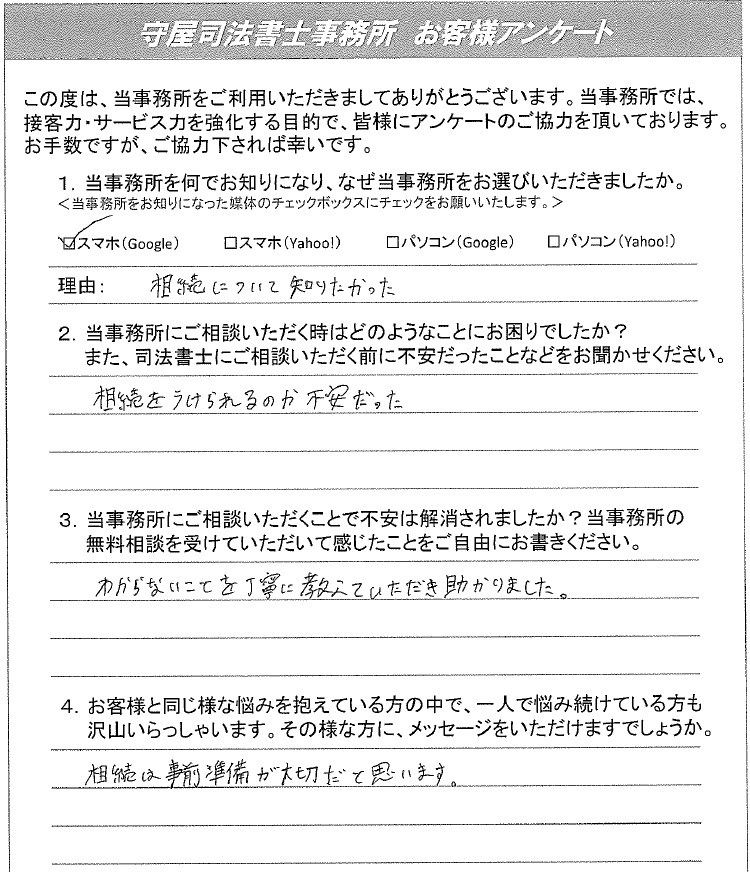 守屋司法書士事務所 お客様アンケート
この度は、当事務所をご利用いただきましてありがとうございます。当事務所では、
接客力・サービス力を強化する目的で、皆様にアンケートのご協力を頂いております。
お手数ですが、ご協力下されば幸いです。
1. 当事務所を何でお知りになり、なぜ当事務所をお選びいただきましたか。
＜当事務所をお知りになった媒体のチェックボックスにチェックをお願いいたします。＞
☑スマホ(Google) □スマホ(Yahoo!) □パソコン(Google) □パソコン(Yahoo!)
理由: 相続について知りたかった
2. 当事務所にご相談いただく時はどのようなことにお困りでしたか?
また、司法書士にご相談いただく前に不安だったことなどをお聞かせください。
相続をうけられるのか不安だった
3. 当事務所にご相談いただくことで不安は解消されましたか?当事務所の
無料相談を受けていただいて感じたことをご自由にお書きください。
わからないことを丁寧に教えていただき助かりました。
4. お客様と同じ様な悩みを抱えている方の中で、一人で悩み続けている方も
沢山いらっしゃいます。その様な方に、メッセージをいただけますでしょうか。
相続は事前準備が大切だと思います。